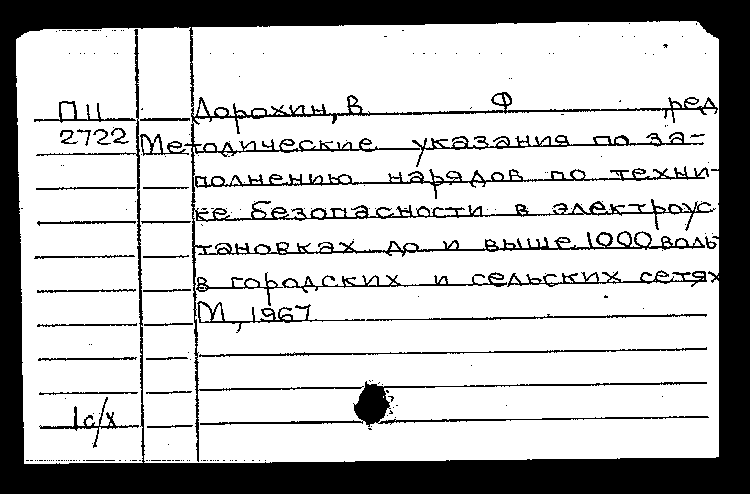 ПII Дорохин, В Ф ,ред
2722 Методические указания по за-
полнению нарядов по техни-
ке безопасности в электроус
тановках до и выше 1000 воль
в городских и сельских сетях
М, 1967
1с/х